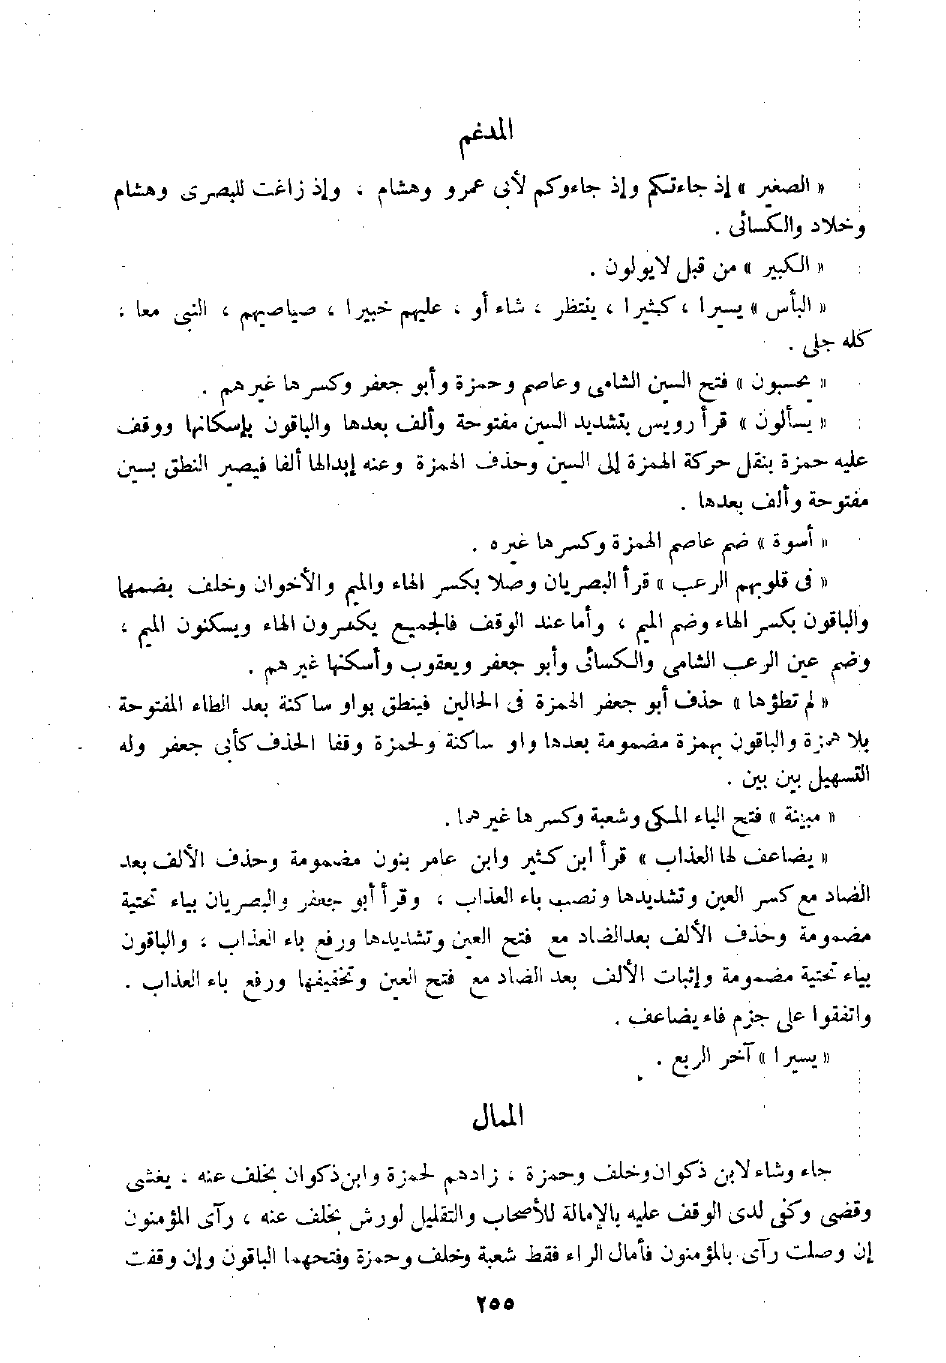 المدغم
« الصغير » إذ جاءتكم وإذ جاءوكم لأبى عمرو وهشام ، وإذ زاغت للبصرى وهشام
وخلاد والكسائى .
« الكبير » من قبل لايولون .
« البأس » يسيرا ، كثيرا ، ينتظر ، شاء أو ، عليهم خبيرا ، صياصيهم ، النبى معا ،
كله جلى .
« يحسبون » فتح السين الشامى وعاصم وحمزة وأبو جعفر وكسرها غيرهم .
« يسألون » قرأ رويس بتشديد السين مفتوحة وألف بعدها والباقون بإسكانها ووقف
عليه حمزة بنقل حركة الهمزة إلى السين وحذف الهمزة وعنه إبدالها ألفا فيصير النطق بسين
مفتوحة وألف بعدها .
« أسوة » ضم عاصم الهمزة وكسرها غيره .
« فى قلوبهم الرعب » قرأ البصريان وصلا بكسر الهاء والميم والأخوان وخلف بضمهما
والباقون بكسر الهاء وضم الميم ، وأما عند الوقف فالجميع يكسرون الهاء ويسكنون الميم ،
وضم عين الرعب الشامى والكسائى وأبو جعفر ويعقوب وأسكنها غيرهم .
« لم تطؤها » حذف أبو جعفر الهمزة فى الحالين فينطق بواو ساكنة بعد الطاء المفتوحة
بلا همزة والباقون بهمزة مضمومة بعدها واو ساكنة ولحمزة وقفا الحذف كأبى جعفر وله
التسهيل بين بين .
« مبينة » فتح الياء المكى وشعبة وكسرها غيرهما .
« يضاعف لها العذاب » قرأ ابن كثير وابن عامر بنون مضمومة وحذف الألف بعد
الضاد مع كسر العين وتشديدها ونصب باء العذاب ، وقرأ أبو جعفر والبصريان بياء تحتية
مضمومة وحذف الألف بعدالضاد مع فتح العين وتشديدها ورفع باء العذاب ، والباقون
بياء تحتية مضمومة وإثبات الألف بعد الضاد مع فتح العين وتخفيفها ورفع باء العذاب .
واتفقوا على جزم فاء يضاعف .
« يسيرا » آخر الربع .
الممال
جاء وشاء لابن ذكوان وخلف وحمزة ، زادهم لحمزة وابن ذكوان بخلف عنه ، يغشى
وقضى وكفى لدى الوقف عليه بالإمالة للأصحاب والتقليل لورش بخلف عنه ، رآى المؤمنون
إن وصلت رآى بالمؤمنون فأمال الراء فقط شعبة وخلف وحمزة وفتحهما الباقون وإن وقفت
٢٥٥